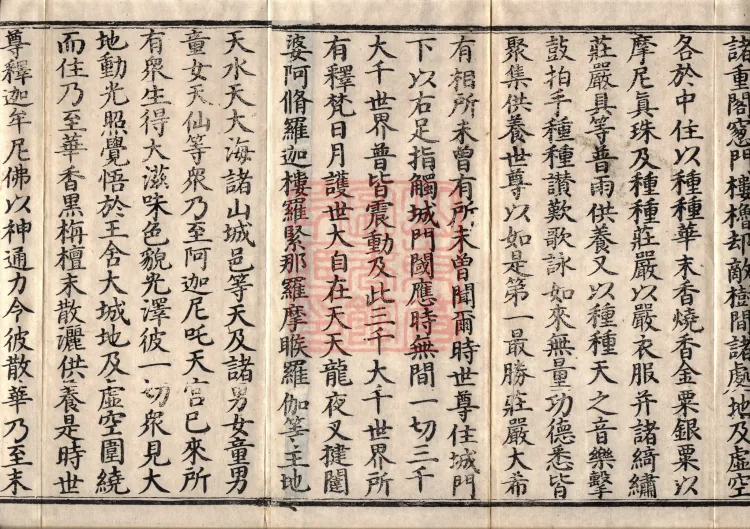 諸重閣寬門樓櫓却敵樹間諸處地及虛空
各於中住以種種華末香燒香金粟銀粟以
摩尼真珠及種種莊嚴以嚴衣服并諸綺繡
莊嚴具等普雨供養又以種種天之音樂擊
鼓拍手種種讃歎歌詠如來無量功德悉皆
聚集供養世尊以如是第一最勝莊嚴大希
有相所未曾有所未曾聞爾時世尊住城門
下以右足指觸城門閫應時無間一切三千
大千世界普皆震動及此三千大千世界所
有釋梵日月護世大自在天天龍夜叉揵闥
婆阿脩羅迦樓羅緊那羅摩睺羅伽等王地
天水天大海諸山城邑等天及諸男女童男
童女天仙等衆乃至阿迦尼吒天宮已來所
有衆生得大滋味色貌光澤彼一切衆見大
地動光照覺悟於王舍大城地及虛空圍繞
而住乃至華香黑栴檀末散灑供養是時世
尊釋迦牟尼佛以神通力令彼散華乃至末